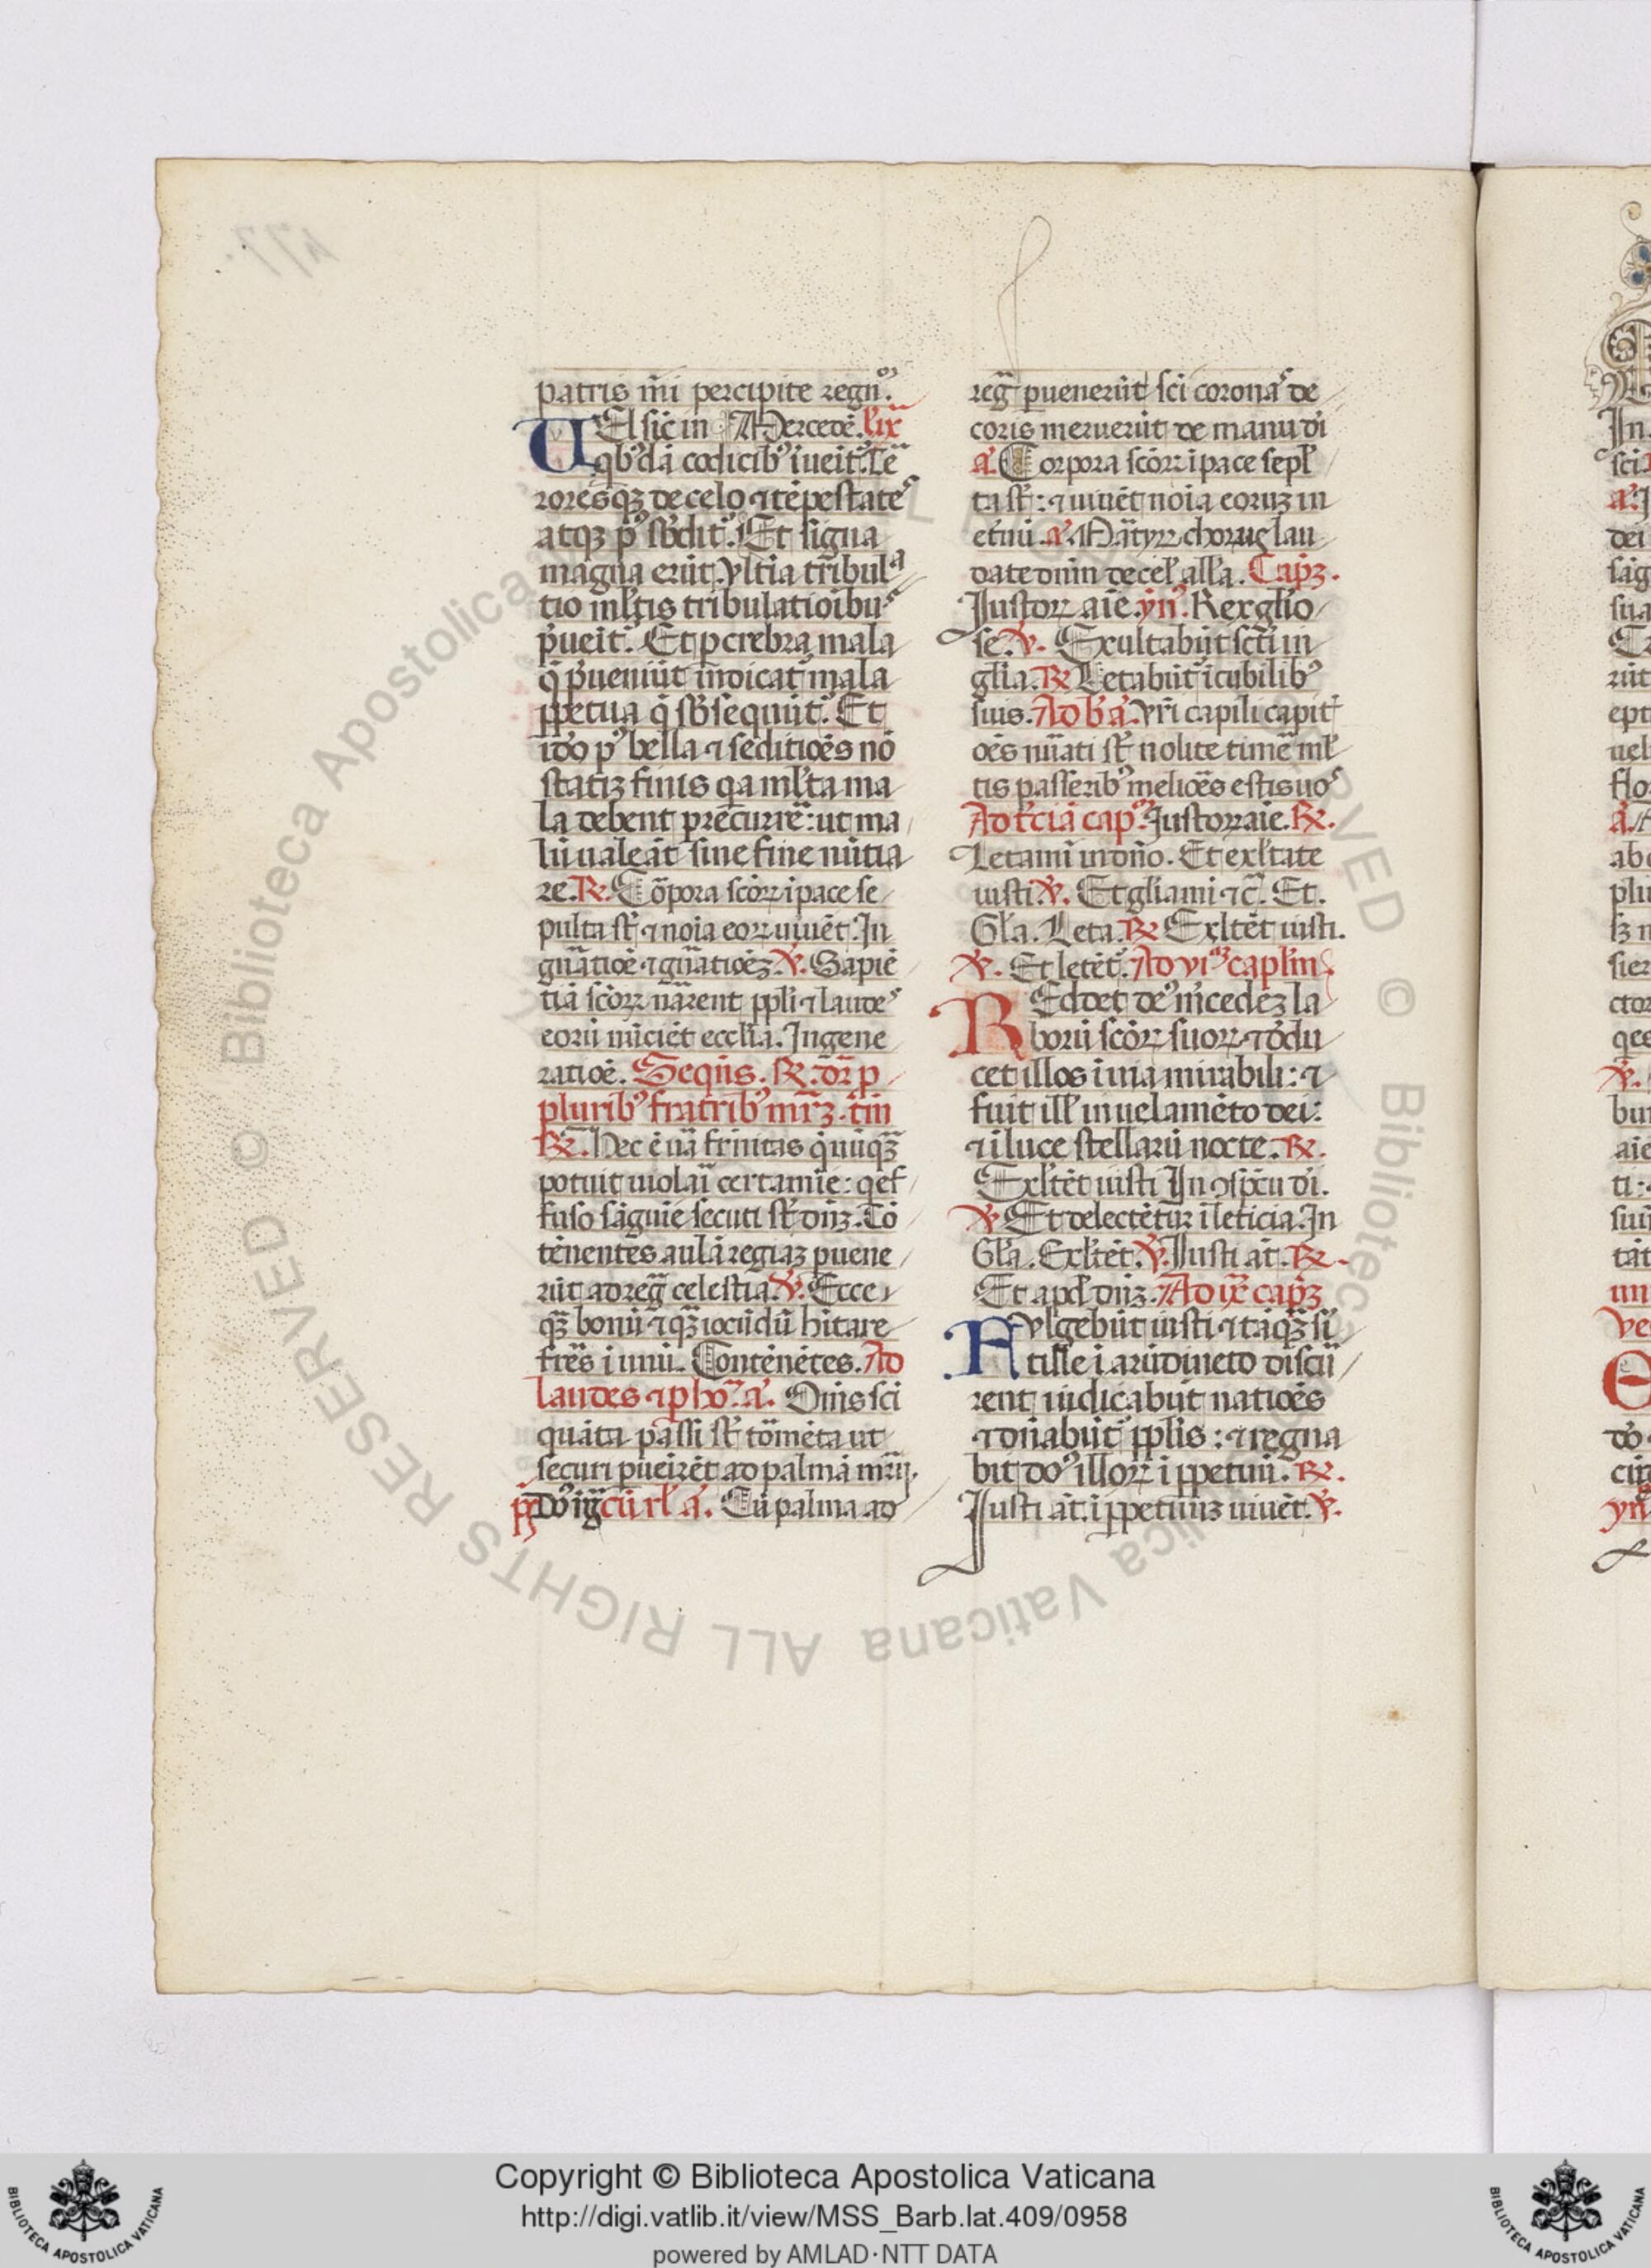 patris mi percipite regnū.
El sic in Mercedē. l'ix
qb'dā codicib' īveit'. Tē
roresqꝫ de celo ⁊ tēpestates
atqꝫ p' sb'dit'. Et signa
magna erūt. Vltīa tribula
tio ml'tis tribulatiōibus
p̄veit'. Et p crebra mala
q̄ p̄veniūt īndicat' mala
ꝑpetua q̄ sb'sequūt'. Et
iō p' bella ⁊ seditiōes nō
statiꝫ finis qa ml'ta ma
la debent precurrē: ut ma
lū valeāt sine fine nūtia
re. ℞. Corpora scōꝝ ī pace se
pulta st̄ ⁊ noīa eoꝝ vivēt. In
gn̄atiōe ⁊ gn̄atiōeꝫ. ℣. Sapiē
tiā scōꝝ narrent ppl'i ⁊ laudes
eorū nūciēt eccl'ia. In gene
ratiōe. Seqn̄s. ℞. dr̄ p
plurib' fratrib' mr̄ꝫ. tm̄
℞. Hec ē va frn̄itas q̄ nūqꝫ
potuit violari certamīe: q ef
fuso sāguīe secuti st̄ dn̄ꝫ. Cō
tēnentes aulā regiaꝫ pvene
rūt ad reḡ celestia. ℣. Ecce
qꝫ bonū ⁊ qꝫ iocūdū hitare
fres ī unū. Contēnētes. Ad
laudes ⁊ p ho. a. Om̄s sci
quāta passi st̄ tormēta ut
securi p̄veirēt ad palmā mr̄ij.
Cū palma ad
reḡ pvenerūt sci coronas de
coris meruerūt de manu di
a. Corpora scōꝝ ī pace sepl'
ta st̄: ⁊ vivēt noīa eoruꝫ in
et̄nū. a. Mātyꝝ chorus lau
date dn̄m de cel' all'a. Capꝫ.
Justoꝝ aīe. yn̄. Rex gl'io
se. ℣. Exultabūt scti in
gl'ia. ℞. Letabūt' ī cubilib'
suis. Ad b' a. Vr̄i capili capit'
oēs nūati st̄ nolite timē ml'
tis passerib' meliōes estis vos
Ad t'ciā cap. Justoꝝ aīe. ℞.
Letami in dn̄o. Et exl'tate
iusti ℣. Et gl'iami ⁊ c̄. Et.
Gl'a. Leta. ℞ Exl'tēt iusti.
℣. Et letēt'. Ad vi capl'm
Eddet de' m'cedēꝫ la
borū scōꝝ suoꝝ ⁊ dōdu
cet illos ī via mirabili: ⁊
fuit ill' in velamēto dei:
⁊ ī luce stellarū nocte. ℞.
Exl'tēt iusti In ꝯspcū di.
℣ Et delectētur ī leticia. In
Gl'a. Exl'tēt. ℣. Justi āt. ℞.
Et apd' dn̄ꝫ. Ad ix capꝫ
Vlgebūt iusti ⁊ tāqꝫ sī
tille ī arūdineto discū
rent iudicabūt natiōes
⁊ dn̄abūt' ppl'is: ⁊ regna
bit do' illoꝝ ī ꝑpetuū. ℞.
Justi āt. ī ꝑpetuuꝫ vivēt. ℣.
Copyright © Biblioteca Apostolica Vaticana
http://digi.vatlib.it/view/MSS_Barb.lat.409/0958
powered by AMLAD·NTT DATA